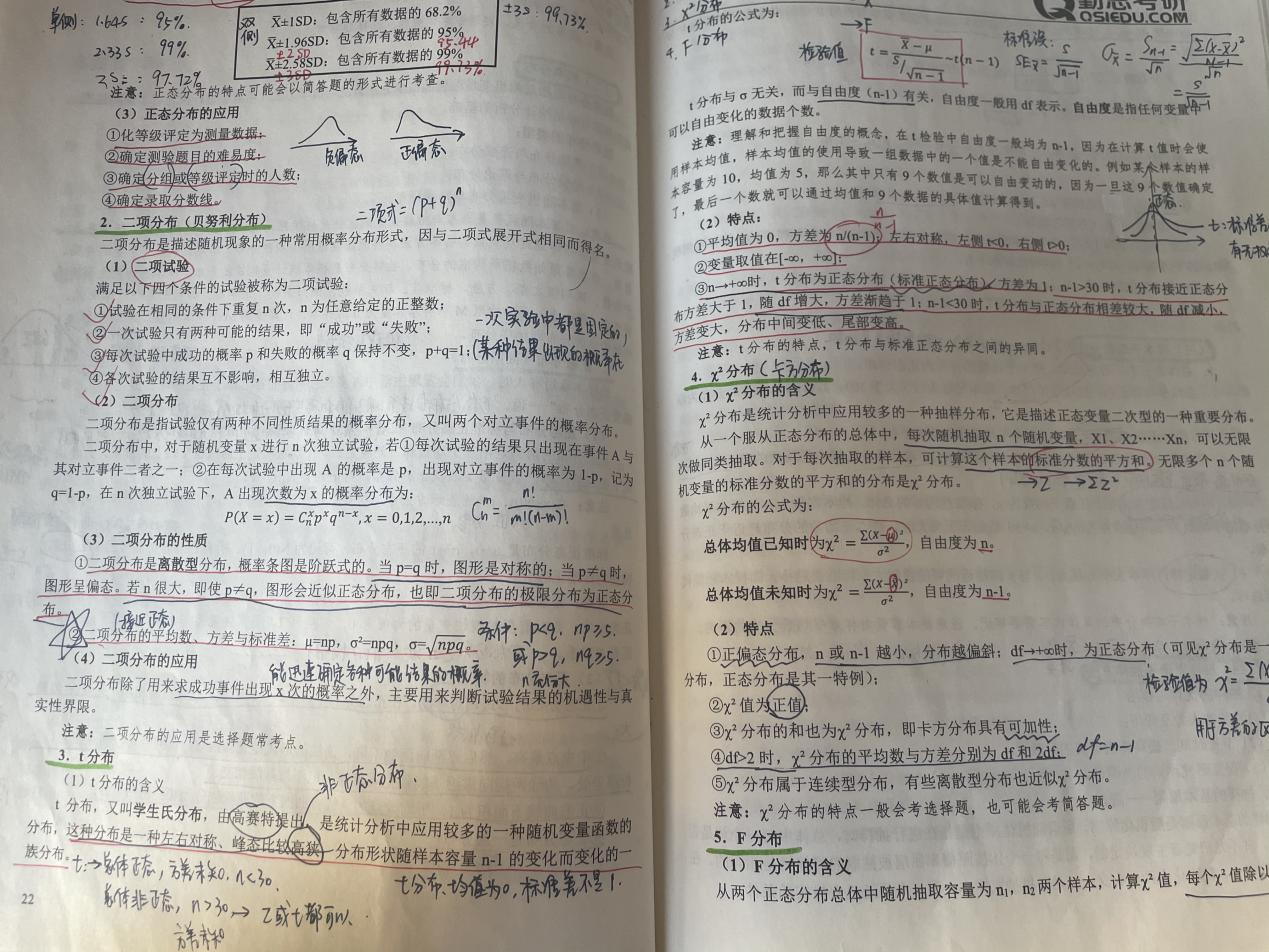 单侧：1.645：95%.
2.33S：99%
3S：97.72%
双侧
X̄±1SD：包含所有数据的 68.2%
X̄±1.96SD：包含所有数据的 95%
±2SD 95.44
X̄±2.58SD：包含所有数据的 99%
±3SD 99.73%
±3S：99.73%
注意：正态分布的特点可能会以简答题的形式进行考查。
（3）正态分布的应用
①化等级评定为测量数据；
②确定测验题目的难易度；
③确定分组或等级评定时的人数；
④确定录取分数线。
负偏态 正偏态
2．二项分布（贝努利分布）
二项式=(p+q)ⁿ
二项分布是描述随机现象的一种常用概率分布形式，因与二项式展开式相同而得名。
（1）二项试验
满足以下四个条件的试验被称为二项试验：
①试验在相同的条件下重复 n 次，n 为任意给定的正整数；
②一次试验只有两种可能的结果，即“成功”或“失败”；
③每次试验中成功的概率 p 和失败的概率 q 保持不变，p+q=1；
一次实验中都是固定的，
（某种结果出现的概率在
④各次试验的结果互不影响，相互独立。
（2）二项分布
二项分布是指试验仅有两种不同性质结果的概率分布，又叫两个对立事件的概率分布。
二项分布中，对于随机变量 x 进行 n 次独立试验，若①每次试验的结果只出现在事件 A 与
其对立事件二者之一；②在每次试验中出现 A 的概率是 p，出现对立事件的概率为 1-p，记为
q=1-p，在 n 次独立试验下，A 出现次数为 x 的概率分布为：
P(X = x) = Cₙˣpˣqⁿ⁻ˣ, x = 0,1,2,...,n
Cₙᵐ = n!/m!(n-m)!
（3）二项分布的性质
①二项分布是离散型分布，概率条图是阶跃式的。当 p=q 时，图形是对称的；当 p≠q 时，
图形呈偏态。若 n 很大，即使 p≠q，图形会近似正态分布，也即二项分布的极限分布为正态分
布。
（接近正态）
②二项分布的平均数、方差与标准差：μ=np，σ²=npq，σ=√npq。
条件：p<q，np≥5.
或 p>q，nq≥5.
（4）二项分布的应用
能迅速确定各种可能结果的概率.
二项分布除了用来求成功事件出现 x 次的概率之外，主要用来判断试验结果的机遇性与真
实性界限。
注意：二项分布的应用是选择题常考点。
3．t 分布
（1）t 分布的含义
非正态分布.
t 分布，又叫学生氏分布，由高赛特提出，是统计分析中应用较多的一种随机变量函数的
分布，这种分布是一种左右对称、峰态比较高狭，分布形状随样本容量 n-1 的变化而变化的一
族分布。
t：→总体正态，方差未知，n<30.
总体非正态，n>30 → Z或t都可以.
方差未知
t分布：均值为0，标准差不是1.
22
3．χ²分布
4．F分布
勤思考研
QSIEDU.COM
t 分布的公式为：
检验值
t = (X̄ − μ)/(S/√n − 1) ~t(n − 1)
标准误：SEx̄ = S/√n-1
σx̄ = Sₙ₋₁/√n = √(Σ(X-X̄)²/n-1)/√n
= S/√n-1
t 分布与 σ 无关，而与自由度（n-1）有关，自由度一般用 df 表示。自由度是指任何变量中
可以自由变化的数据个数。
注意：理解和把握自由度的概念，在 t 检验中自由度一般均为 n-1，因为在计算 t 值时会使
用样本均值，样本均值的使用导致一组数据中的一个值是不能自由变化的。例如某个样本的样
本容量为 10，均值为 5，那么其中只有 9 个数值是可以自由变动的，因为一旦这 9 个数值确定
了，最后一个数就可以通过均值和 9 个数据的具体值计算得到。
（2）特点：
n/n-1
正态.
t：标准差
①平均值为 0，方差为 n/(n-1)；左右对称，左侧 t<0，右侧 t>0；
②变量取值在[-∞，+∞]；
③n→+∞时，t 分布为正态分布（标准正态分布），方差为 1；n-1>30 时，t 分布接近正态分
布方差大于 1，随 df 增大，方差渐趋于 1；n-1<30 时，t 分布与正态分布相差较大，随 df 减小，
方差变大，分布中间变低、尾部变高。
注意：t 分布的特点，t 分布与标准正态分布之间的异同。
4．χ² 分布（卡方分布）
（1）χ² 分布的含义
χ² 分布是统计分析中应用较多的一种抽样分布，它是描述正态变量二次型的一种重要分布。
从一个服从正态分布的总体中，每次随机抽取 n 个随机变量，X1、X2……Xn，可以无限
次做同类抽取。对于每次抽取的样本，可计算这个样本的标准分数的平方和。无限多个 n 个随
机变量的标准分数的平方和的分布是χ² 分布。
→Z →ΣZ²
χ² 分布的公式为：
总体均值已知时为χ² = Σ(X−μ)²/σ²，自由度为 n。
总体均值未知时为χ² = Σ(X−X̄)²/σ²，自由度为 n-1。
（2）特点
①正偏态分布，n 或 n-1 越小，分布越偏斜；df→+∞时，为正态分布（可见χ² 分布是一
分布，正态分布是其一特例）；
检验值为 χ² =
②χ² 值为正值；
③χ² 分布的和也为χ² 分布，即卡方分布具有可加性；
④df>2 时，χ² 分布的平均数与方差分别为 df 和 2df；
df=n-1
⑤χ² 分布属于连续型分布，有些离散型分布也近似χ² 分布。
注意：χ² 分布的特点一般会考选择题，也可能会考简答题。
5．F 分布
（1）F 分布的含义
从两个正态分布总体中随机抽取容量为 n₁, n₂ 两个样本，计算χ² 值，每个χ² 值除以